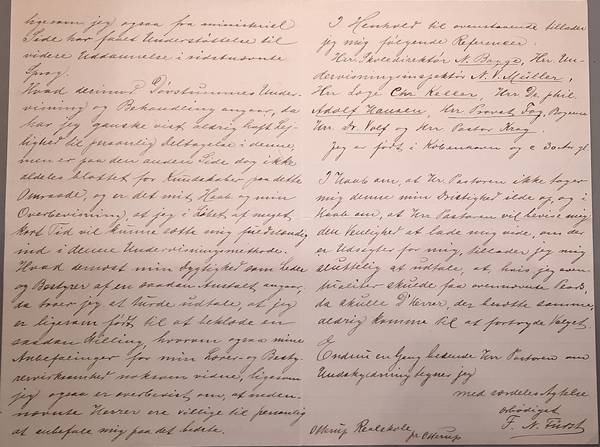 ligesom jeg ogsaa fra ministeriel
Side har faaet Understøttelse til
videre Uddannelse i sidstnævnte
Sprog.
Hvad derimod Døvstummes Under-
visning og Behandling angaar, da
har jeg ganske vist aldrig haft Lej-
lighed til personlig Deltagelse i denne,
men er paa den anden Side dog ikke
aldeles blottet for Kundskaber paa dette
Omraade, og er det mit Haab og min
Overbevisning, at jeg i Løbet af meget
kort Tid vil kunne sætte mig fuldstændig
ind i denne Undervisningsmethode.
Hvad dernæst min Dygtighed som Leder
og Bestyrer af en saadan Anstalt angaar,
da troer jeg at turde udtale, at jeg
er ligesom født til at beklæde en
saadan Stilling, hvorom ogsaa mine
Anbefalinger for min Lærer- og Besty-
rervirksomhed noksom vidne, ligesom
jeg ogsaa er overbevist om, at neden-
nævnte Herrer ere villige til personlig
at anbefale mig paa det bedste.
I Henhold til ovenstaaende tillader
jeg mig følgende Referencer:
Hrr. Skoledirektør N. Bagge, Hrr. Un-
dervisningsinspektør N. V. Müller,
Hrr. Læge Chr. Keller, Hrr. Dr. phil.
Adolf Hansen, Hrr. Provst Fog,
Hrr. Dr. Volf og Hrr. Pastor Krag.
Jeg er født i København og
I Haab om, at Hr. Pastoren ikke tager
mig denne min Dristighed ilde op, og i
Haab om, at Hr. Pastoren vil bevise mig
den Venlighed at lade mig vide, om der
er Udsigter for mig, tillader jeg mig
sluttelig at udtale, at, hvis jeg even-
tualiter skulde faa ovennævnte Plads,
da skulle D'Herrer, der ansætte samme,
aldrig komme til at fortryde Valget.
Endnu en Gang bedende Hrr Pastoren om
Undskyldning tegner jeg
med særdeles Agtelse
ærbødigst
F. N. Fürst
Otterup Realskole
pr. Otterup